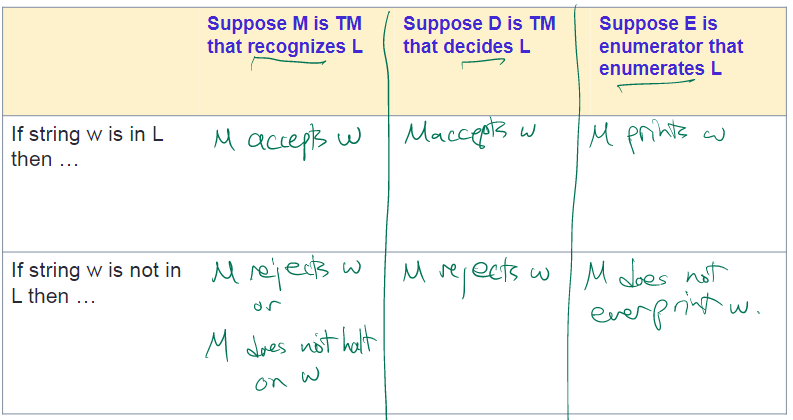 Suppose M is TM
that recognizes L
Suppose D is TM
that decides L
Suppose E is
enumerator that
enumerates L
If string w is in L
then …
M accepts w
M accepts w
M prints w
If string w is not in
L then …
M rejects w
or
M does not halt
on w
M rejects w
M does not
ever print w.